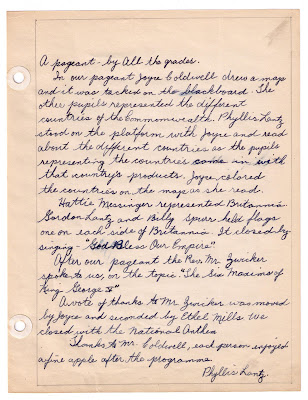 A pageant - by All the grades.
In our pageant Joyce Coldwell drew a map
and it was tacked on the blackboard. The
other pupils represented the different
countries of the Commonwealth. Phyllis Lantz
stood on the platform with Joyce and read
about the different countries as the pupils
representing the countries came in with
that country's products. Joyce colored
the countries on the map as she read.
Hattie Messinger represented Britannia.
Gordon Lantz and Billy Spurr held flags
one on each side of Britannia. It closed by
singing - "God Bless Our Empire"
After our pageant the Rev. Mr. Zwicker
spoke to us, on the topic "The Six Maxims of
King George V"
A vote of thanks to Mr. Zwicker was moved
by Joyce and seconded by Ethel Mills. We
closed with the National Anthem
Thanks to Mr. Coldwell, each person enjoyed
a fine apple after the programme.
Phyllis Lantz.